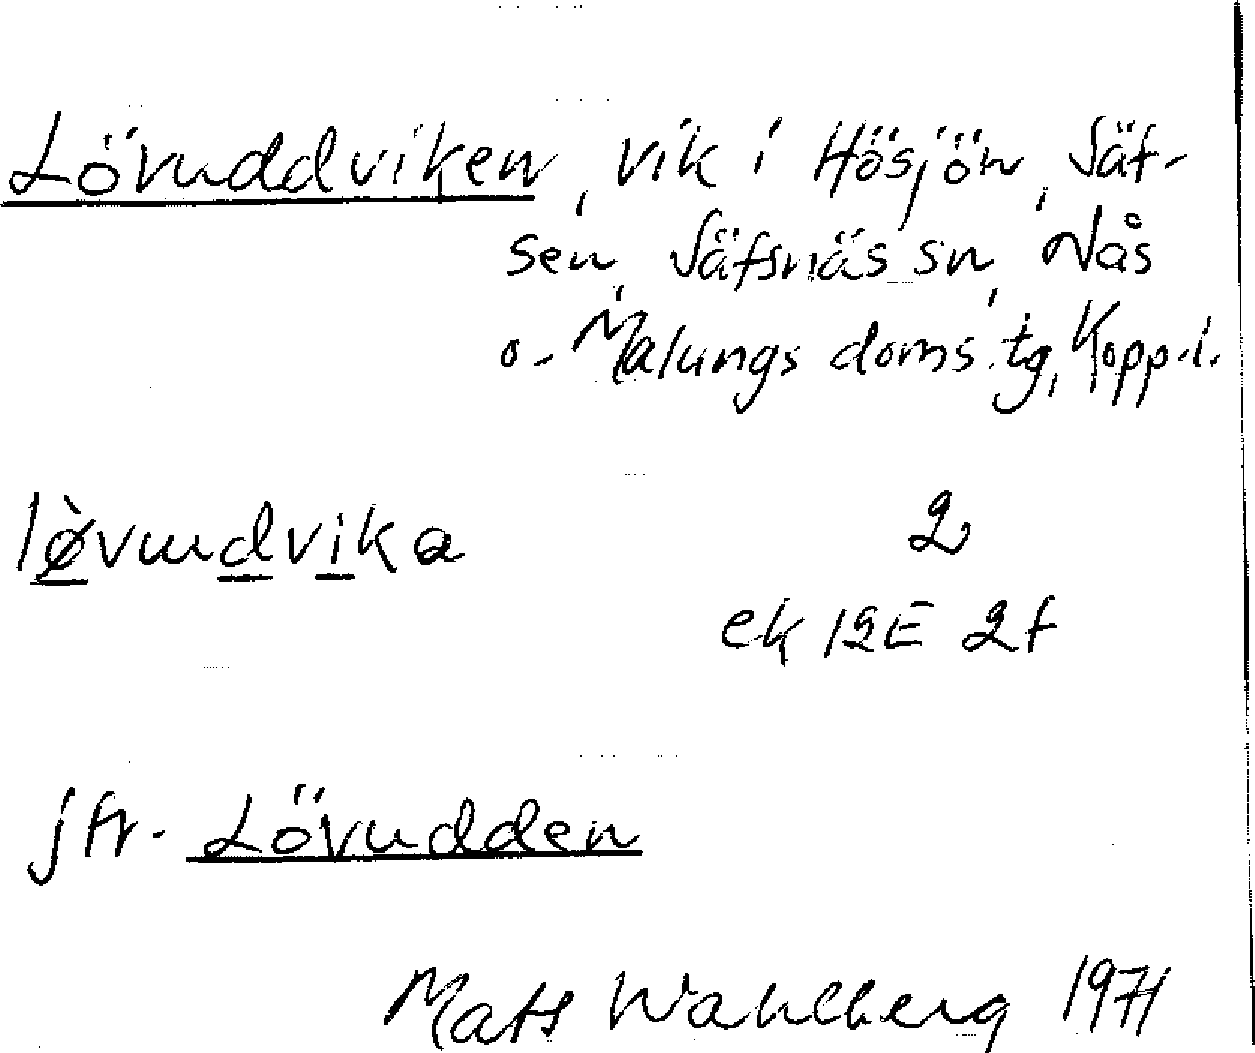 Lövuddviken, vik i Hösjön, Säf-
sen, Säfsnäs sn, Nås
o. Malungs doms.tg, Kopp.l.
lø̀vuudvika 2
ek 12E 2f
jfr. Lövudden
Mats Wahlberg 1971